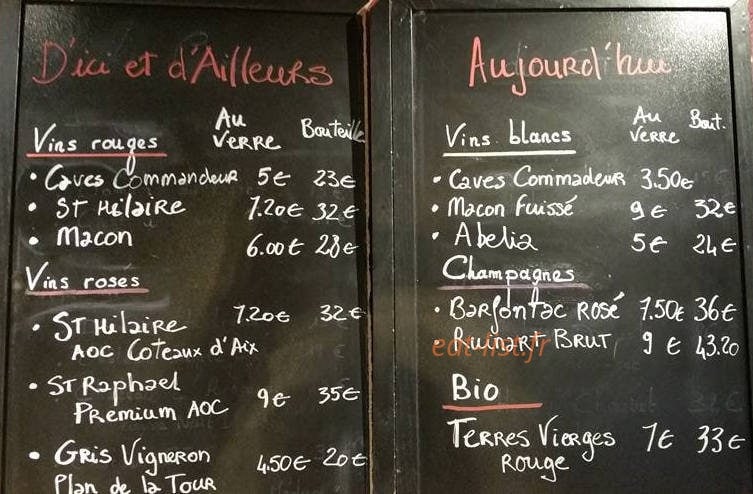 D'ici et d'Ailleurs
Au
Verre
Bouteille
Vins rouges
• Caves Commandeur 5€ 23€
• St Hilaire 7.20€ 32€
• Macon 6.00€ 28€
Vins roses
• St Hilaire 7.20€ 32€
AOC Coteaux d'Aix
• St Raphael
Premium AOC 9€ 35€
• Gris Vigneron 4.50€ 20€
Plan de la Tour
Aujourd'hui
Au
Verre
Bout.
Vins blancs
• Caves Commadeur 3.50€
• Macon Fuissé 9€ 32€
• Abelia 5€ 24€
Champagnes
• Barfontac Rosé 7.50€ 36€
• Ruinart Brut 9€ 43.20
Bio
Terres Vierges 7€ 33€
Rouge